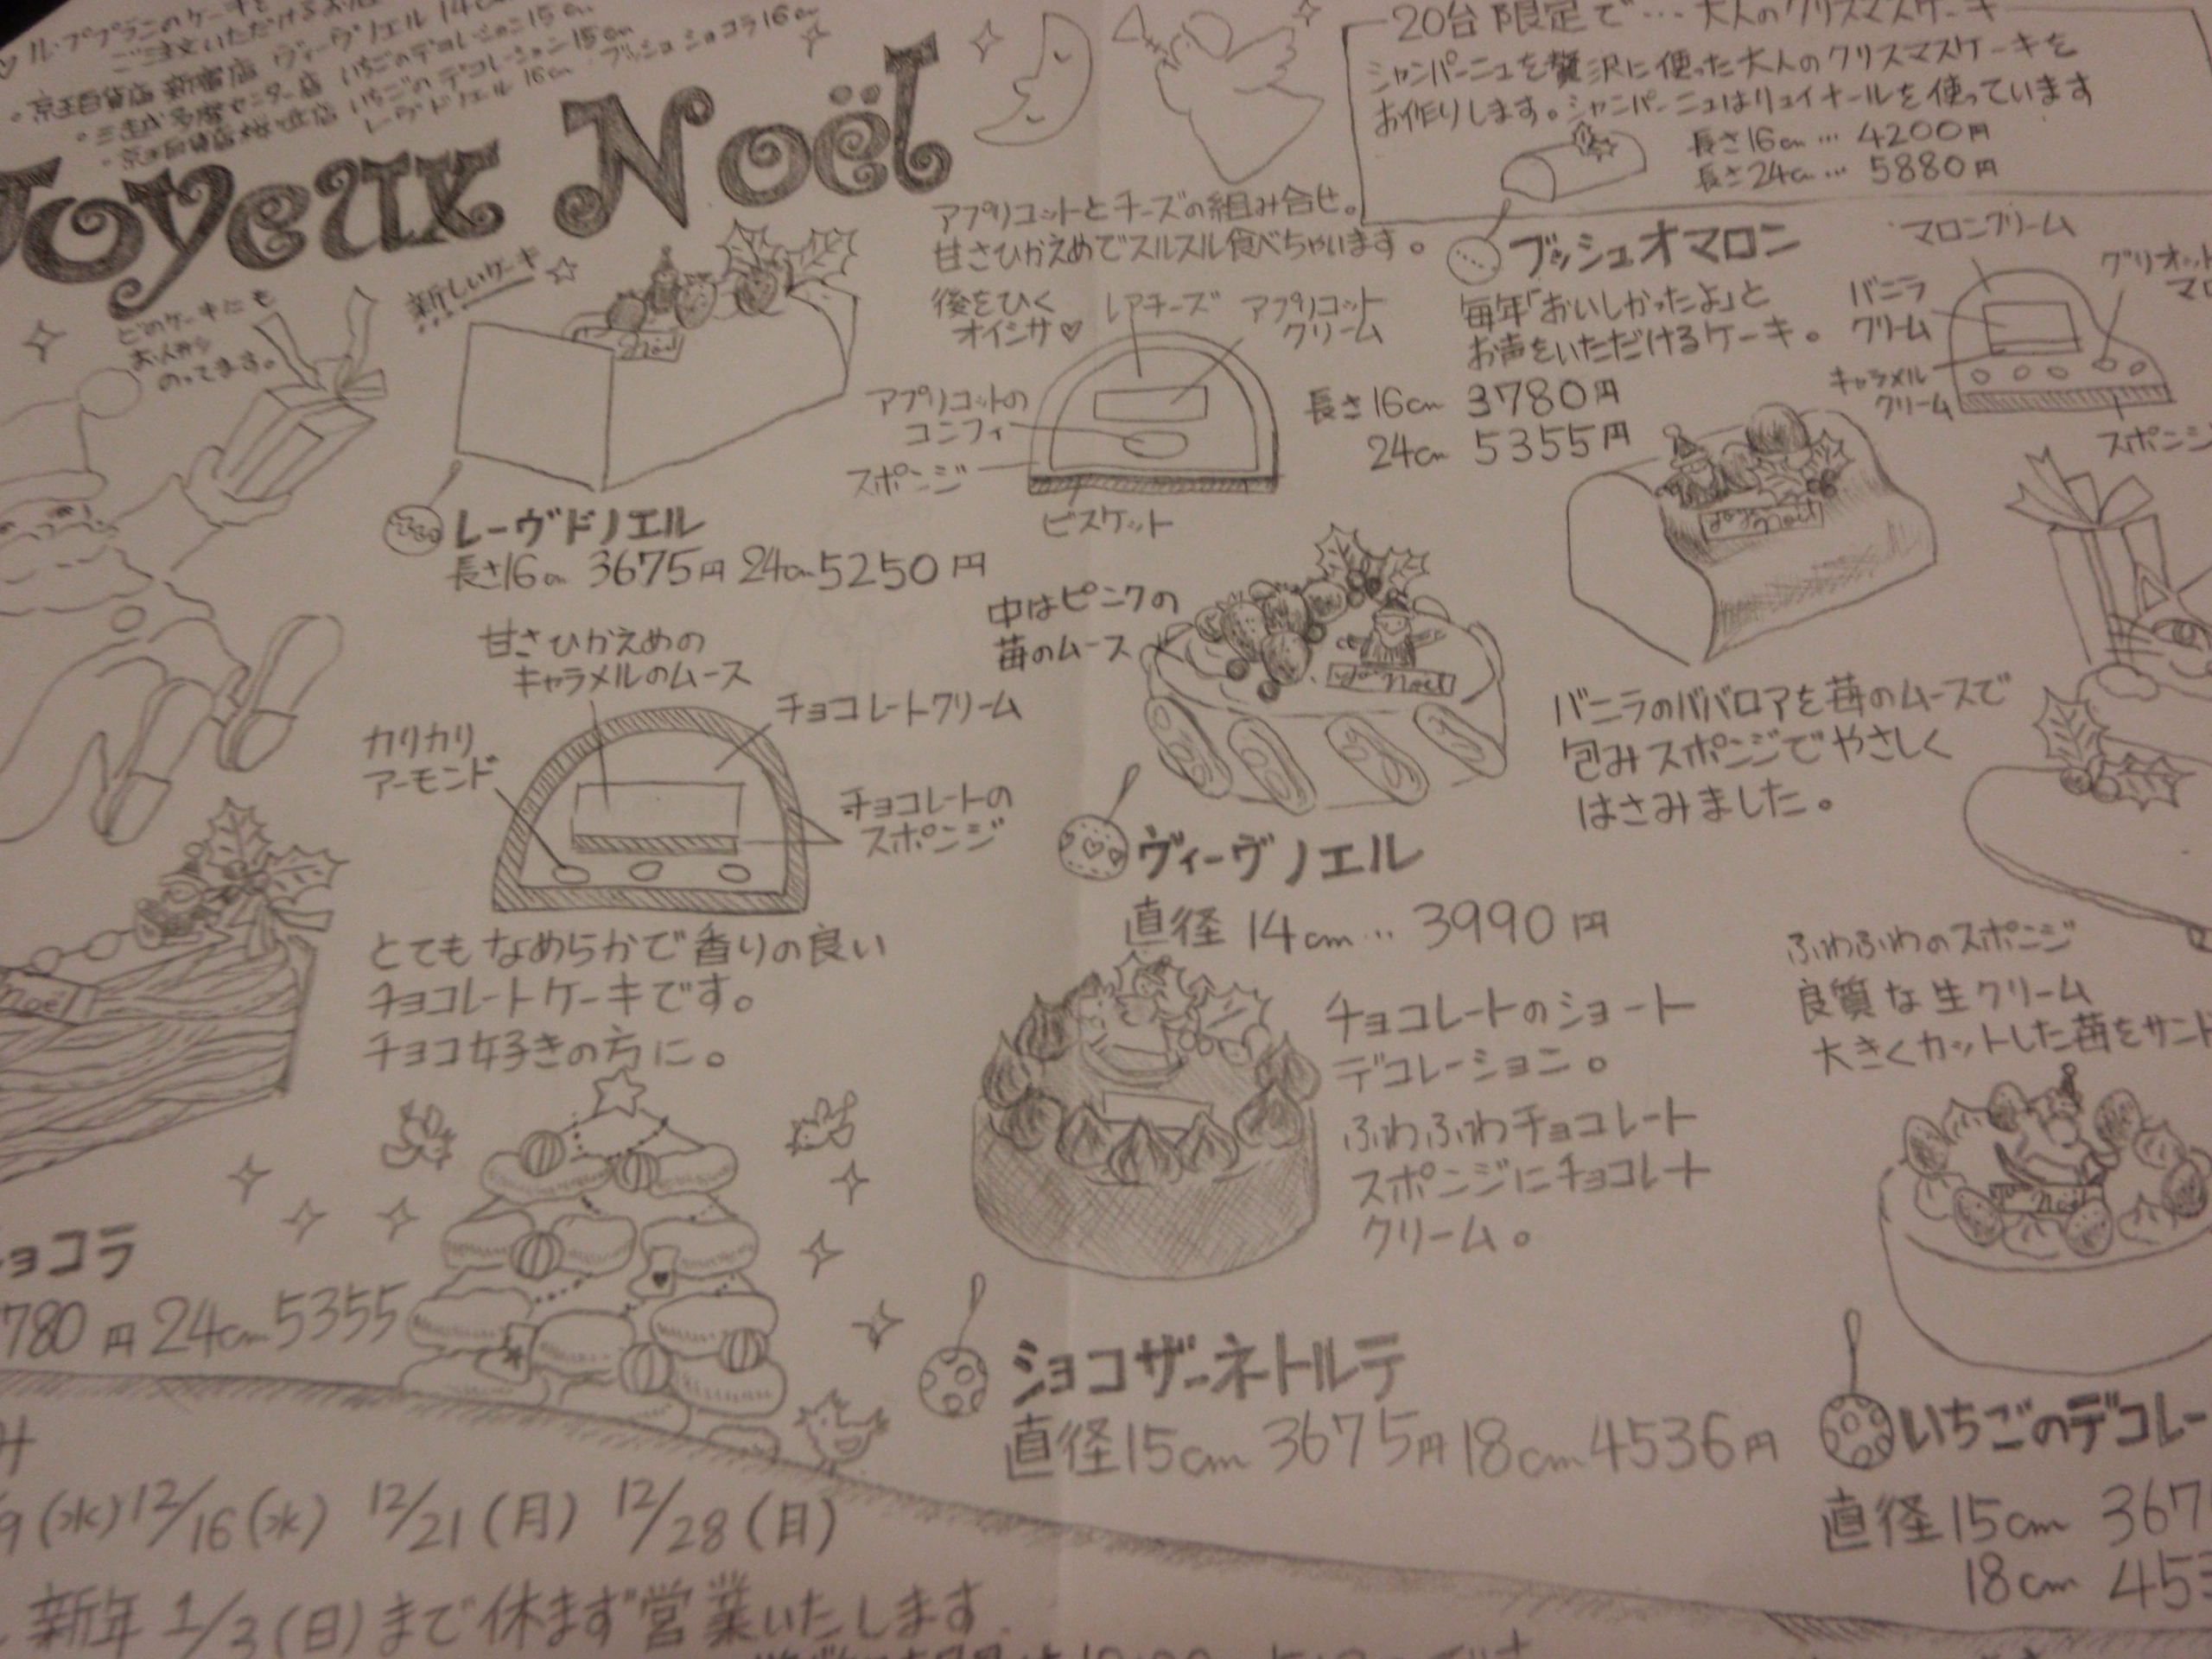 ル・ププランのケーキを
ご注文いただけるお店
・京王百貨店 新宿店 ヴィーヴノエル 14cm
・三越多摩センター店 いちごのデコレーション15cm
・京王百貨店 店 いちごのデコレーション15cm
レーヴドノエル 16cm ブッシュショコラ16cm
Joyeux Noël
どのケーキにも
お人形が
のってます。
新しいケーキ☆
noël
20台限定で…大人のクリスマスケーキ
シャンパーニュを贅沢に使った大人のクリスマスケーキを
お作りします。シャンパーニュはリュイナールを使っています
長さ16cm… 4200円
長さ24cm… 5880円
アプリコットとチーズの組み合せ。
甘さひかえめでスルスル食べちゃいます。
後をひく
オイシサ♡
レアチーズ
アプリコット
クリーム
アプリコットの
コンフィ
スポンジ
ビスケット
レーヴドノエル
長さ16cm 3675円 24cm5250円
ブッシュオマロン
毎年「おいしかったよ」と
お声をいただけるケーキ。
長さ16cm 3780円
24cm 5355円
マロンクリーム
バニラ
クリーム
グリオット
マロ
キャラメル
クリーム
スポンジ
Joyeux noël
甘さひかえめの
キャラメルのムース
チョコレートクリーム
カリカリ
アーモンド
チョコレートの
スポンジ
とてもなめらかで香りの良い
チョコレートケーキです。
チョコ好きの方に。
noël
ョコラ
780円 24cm 5355
中はピンクの
苺のムース
noël
バニラのババロアを苺のムースで
包みスポンジでやさしく
はさみました。
ヴィーヴノエル
直径 14cm… 3990円
チョコレートのショート
デコレーション。
ふわふわチョコレート
スポンジにチョコレート
クリーム。
ショコザーネトルテ
直径15cm 3675円 18cm 4536円
ふわふわのスポンジ
良質な生クリーム
大きくカットした苺をサンド
noël
いちごのデコレー
直径15cm 367
18cm 453
み
9(水) 12/16(水) 12/21(月) 12/28(日)
新年1/3(日)まで休まず営業いたします